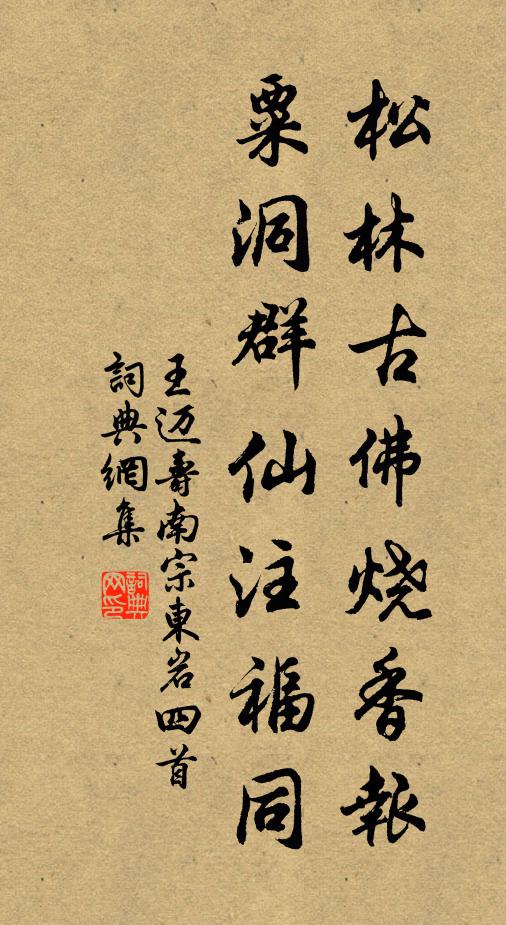 松林古佛烧香報
粟洞群仙注福同
王迈壽南宗東岩四首
詞典網集
詞典网印